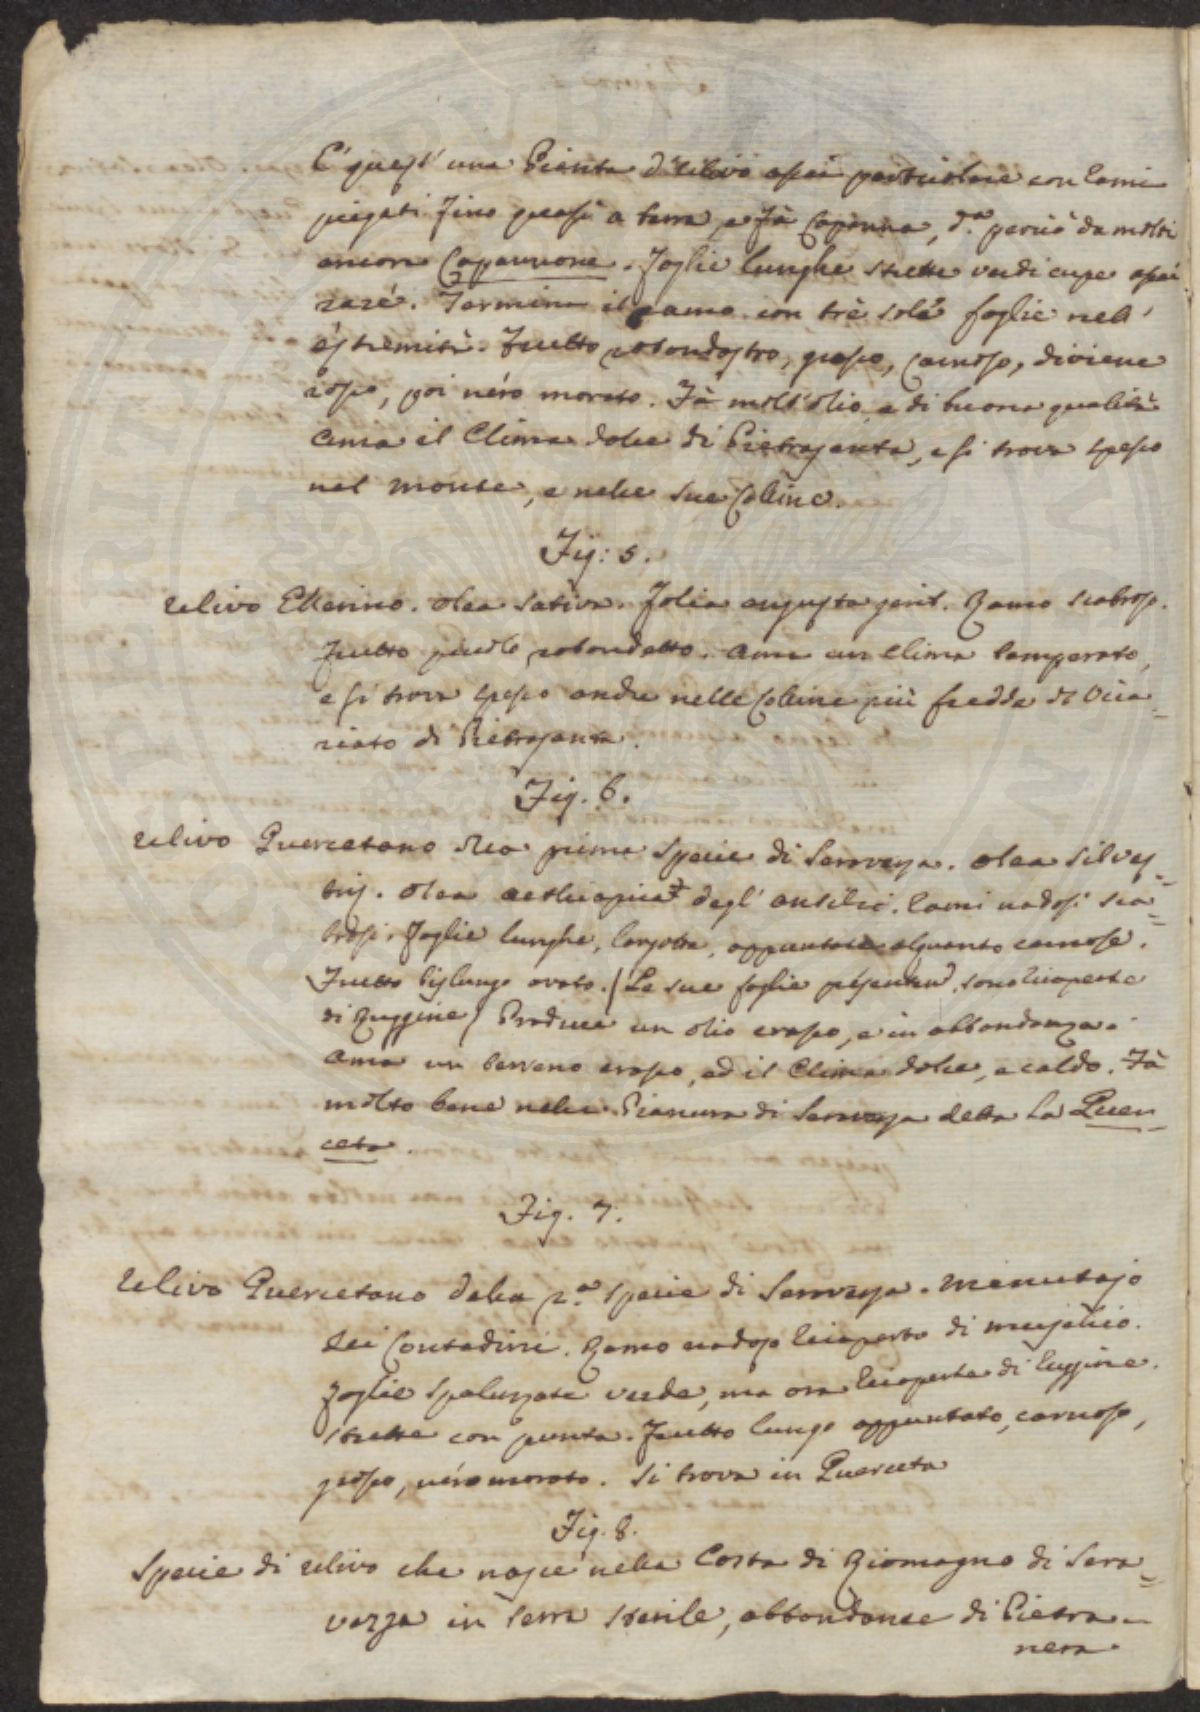 E' quest' una Pianta d'Ulivo assai particolare con rami
piegati fino quasi a terra, e fà Capanna, d.ª perciò da molti
ancora Capannone. Foglie lunghe strette verdi cupe assai
rare. Termina il ramo con trè sole foglie nell'
estremità. Frutto rotondastro, grosso, carnoso, diviene
rosso, poi néro morato. Fà molt'olio, e di buona qualità
Ama il Clima dolce di Pietrasanta, e si trova spesso
nel monte, e nelle sue Colline.
Fig: 5.
Ulivo Olea sativa. Folia angusta Ramo scabroso.
Frutto piccolo rotondetto. Ama un Clima temperato,
e si trova spesso anche nelle Colline più fredde di Vica-
riato di Pietrasanta.
Fig. 6.
Ulivo Quercetano prima Specie di Seravezza. Olea silves=
tris. Olea degl' Rami nodosi sca=
brosi. Foglie lunghe, larghe, appuntate alquanto carnose.
Frutto bislungo ovato. (Le sue foglie sono ricoperte
di Ruggine) Produce un olio crasso, e in abbondanza.
Ama un terreno crasso, ed il Clima dolce, e caldo. Fà
molto bene nella Pianura di Seravezza detta la Quer-
ceta.
Fig. 7.
Ulivo Quercetano della 2.ª specie di Seravezza. Minutajo
dei Contadini. Ramo nodoso ricoperto di
Foglie verde, ma ora ricoperte di Ruggine.
strette con punta. Frutto lungo appuntato, carnoso,
grosso, néro morato. Si trova in Querceta
Fig. 8.
Specie di Ulivo che nasce nella Costa di Riomagno di Sera=
vezza in terra sterile, abbondante di Pietra-
nera.